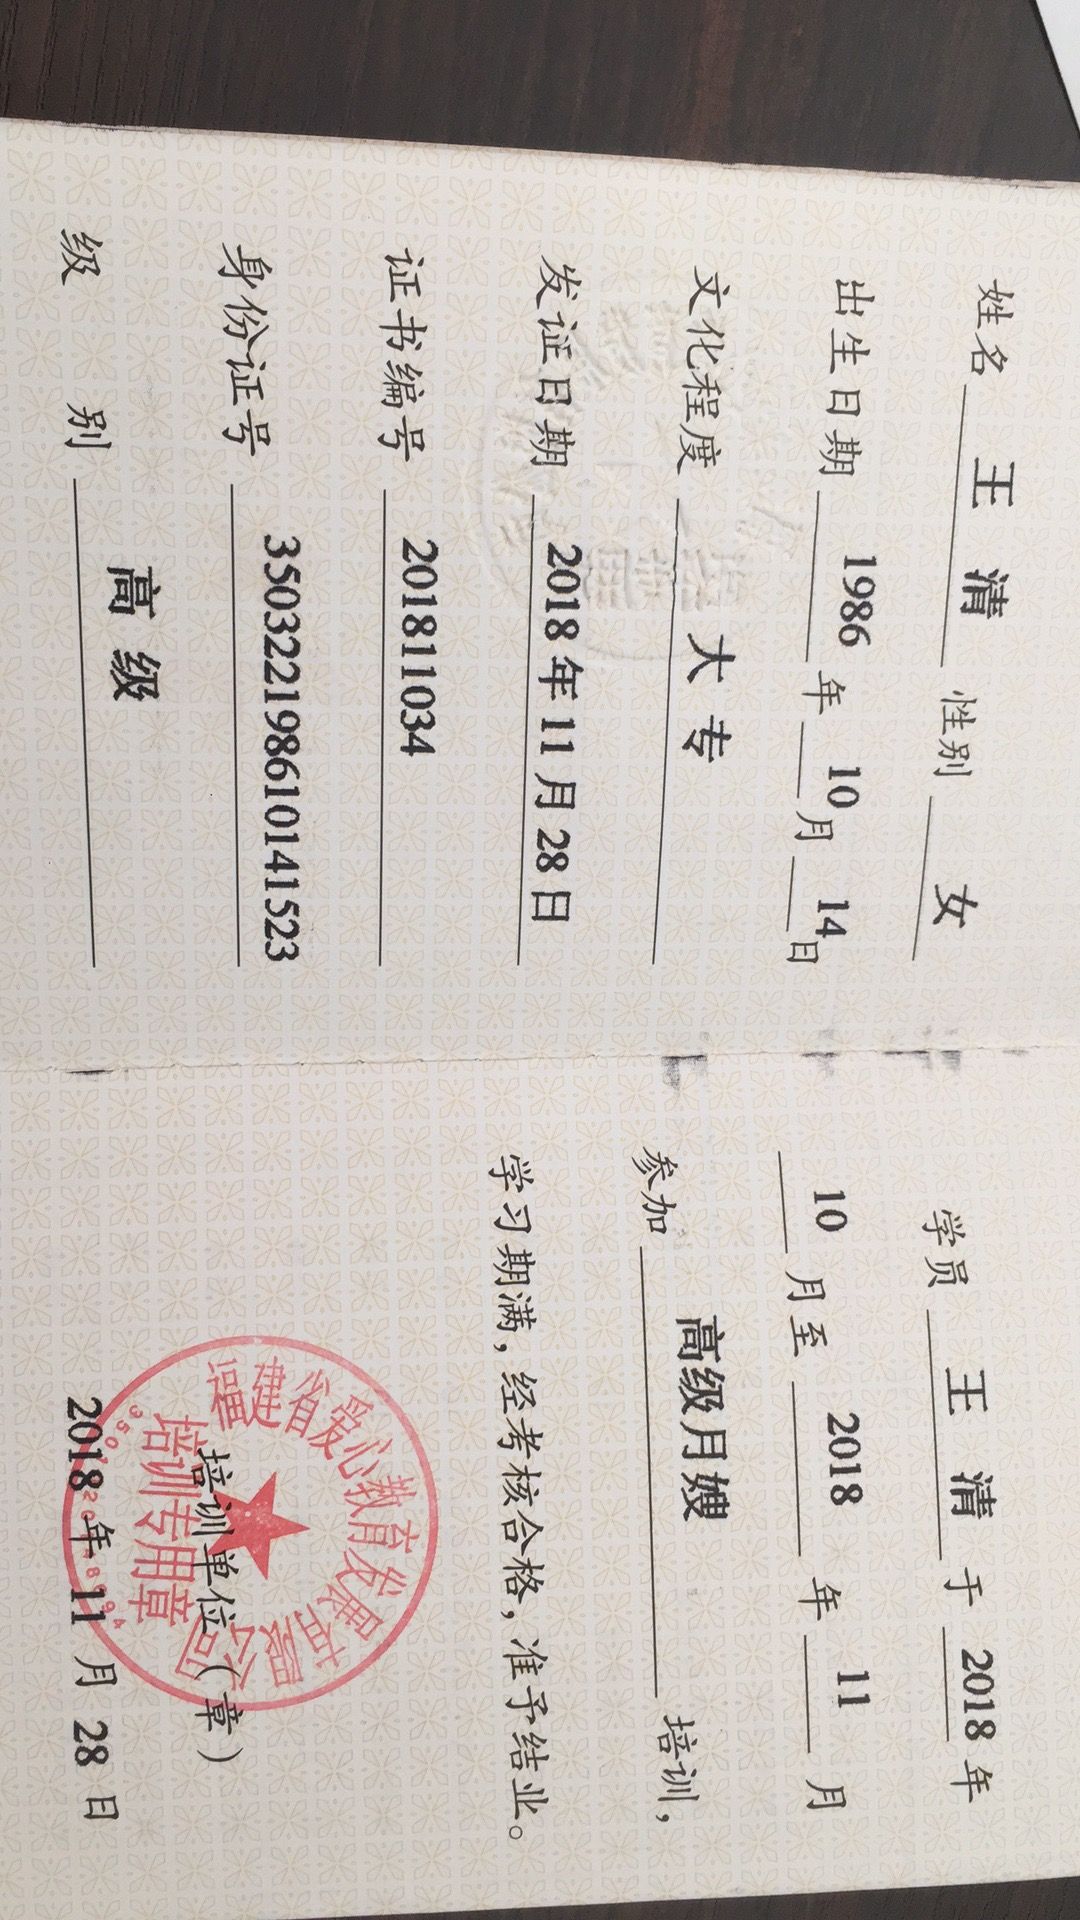 姓名 王 清 性别 女
出生日期 1986 年 10 月 14 日
文化程度 大 专
发证日期 2018 年 11 月 28 日
证书编号 201811034
身份证号 350322198610141523
级 别 高 级
学员 王 清 于 2018 年
10 月至 2018 年 11 月
参加 高级月嫂 培训，
学习期满，经考核合格，准予结业。
培训单位（章）
2018 年 11 月 28 日
福建省爱心教育发展
培训专用章